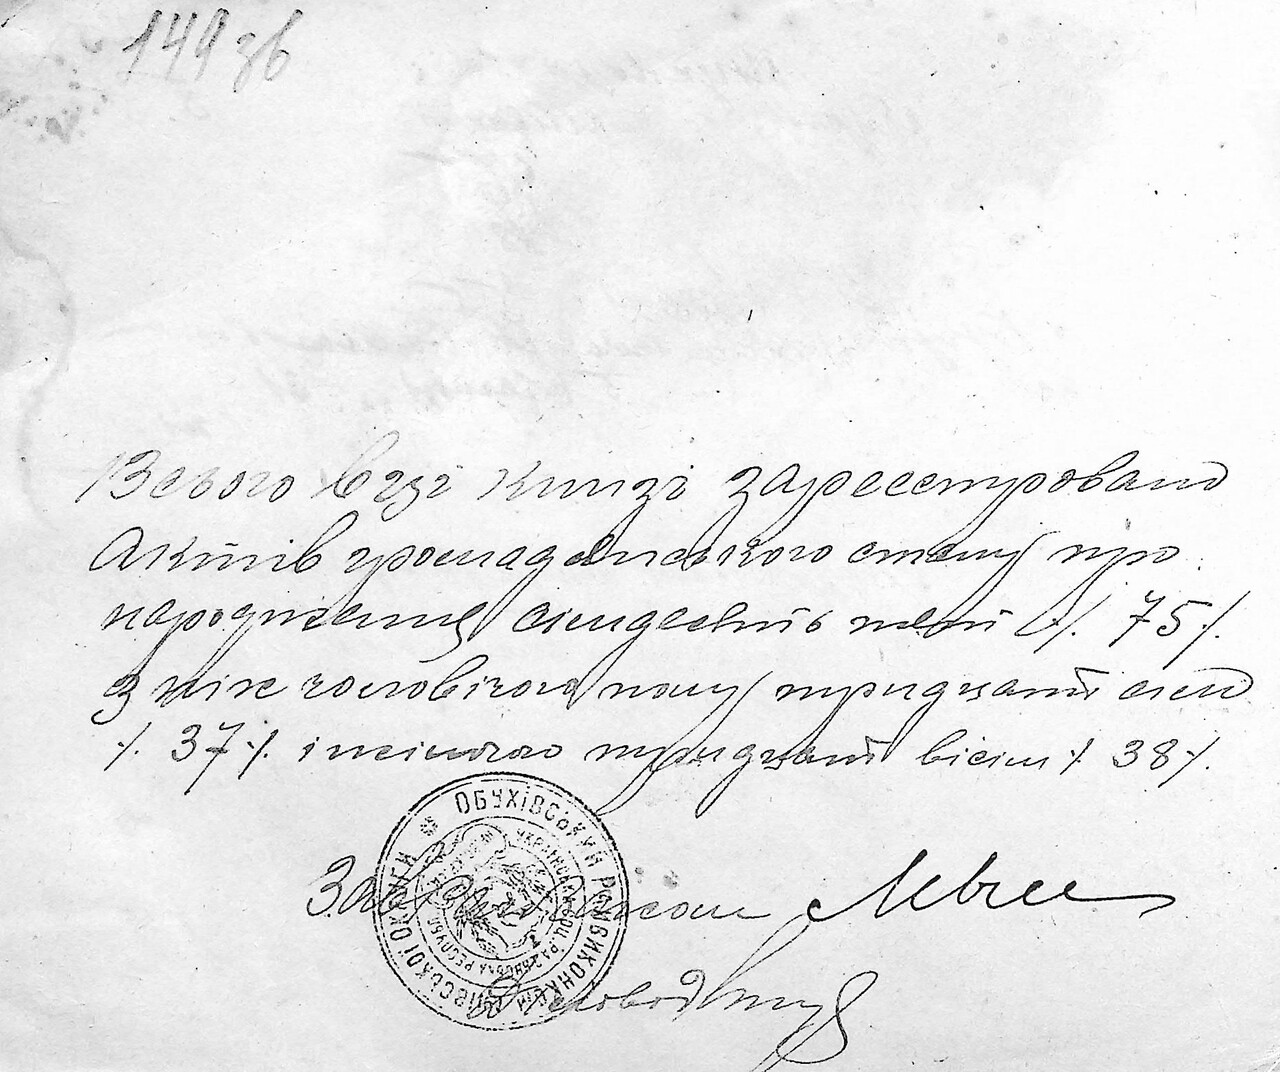 149 зв
Всього в цзі книзі зареєстровано
Актів громадянського стану про
народження сімдесять пять ·/. 75 ·/.
з них чоловічого полу тридцать сем
·/. 37 ·/. і жіночого тридцать вісім ·/. 38 ·/.
Зав
Діловод
ОБУХІВСЬКИЙ РАЙВИКОНКОМ КИЇВСЬКОЇ ОКРУГИ
УКРАЇНСЬКА СОЦ. РАДЯНСЬКА РЕСПУБЛ.